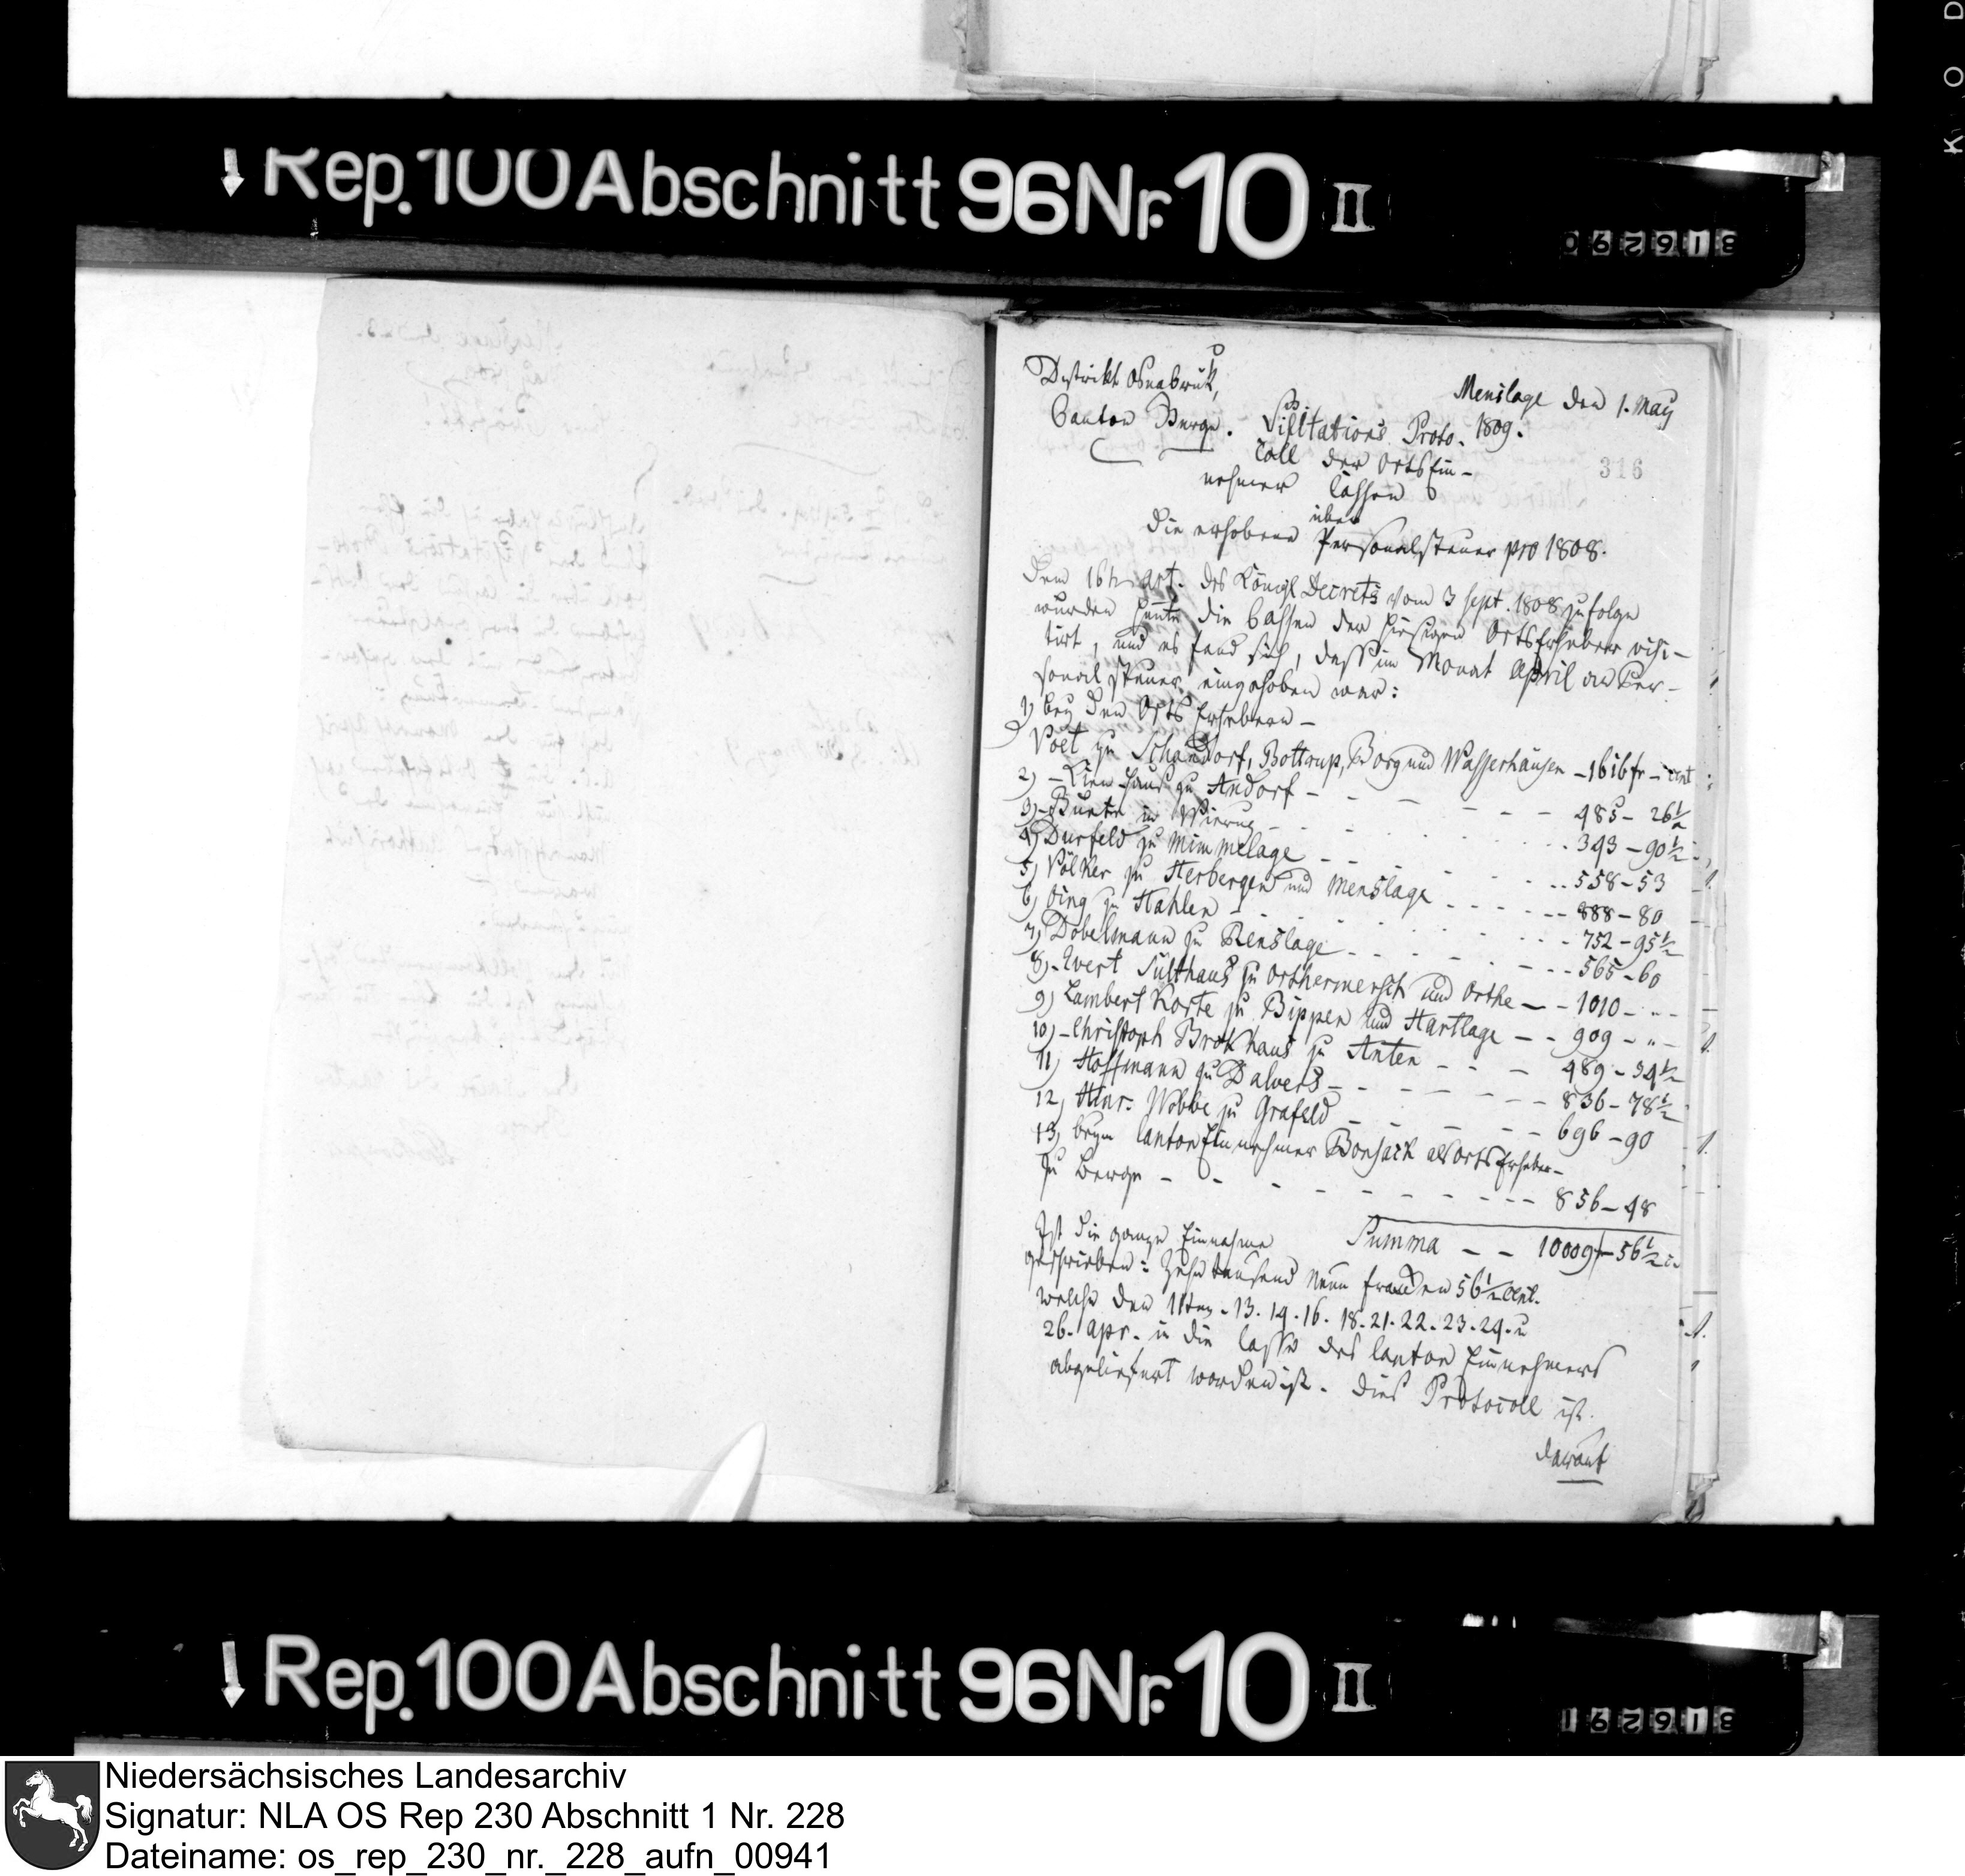 Rep. 100 Abschnitt 96 Nr. 10 II
062918
Distrikt Osnabrück,
Canton Berge.
Menslage den 1. May
1809.
316
Visitations Proto-
coll der Ortsein-
nehmer Cassen
über
die erhobene Personalsteuer pro 1808.
Dem 16tn art. des Königl Decrets vom 3 Sept. 1808 zufolge
wurden heute die Cassen der hiesigen Ortserheber visi-
tirt, und es fand sich, dass im Monat April an Per-
sonal Steuer eingehoben war:
1) bey den Orts Erhebern -
Voet zu Schandorf, Bottrup, Borg und Wasserhausen - 1616 fr - cent
2) - haus zu Andorf - 485 - 26½
3) - Buete in Wierup - 343 - 90½
4) Durfeld zu Mimmelage - 558 - 53
5) Völker zu Herbergen und Menslage - 888 - 80
6) Oing zu Hahlen - 752 - 95½
7) Dobelmann zu Renslage - 565 - 60
8) - Evert Sulthaus zu Orthermersch und Orthe - - 1010 - " -
9) Lambert Korte zu Bippen und Hartlage - - 909 - " -
10) - Christoph Brokhaus zu Anten - - - 489 - 34½
11) Hoffmann zu Dalvers - - - 836 - 78½
12) Hinr. Wobbe zu Grafeld - - - 696 - 90
13) beym Canton Einnehmer Bonsack als Ortserheber -
zu Berge - - - 856 - 48
Summa - - 10009 f - 56½ c
Ist die ganze Einnahme
geschrieben: Zehn tausend Neun franken 56½ Cent.
welche den 11ten. 13. 14. 16. 18. 21. 22. 23. 24. u
26. apr. in die Casse des Canton Einnehmers
abgeliefert worden ist. Dies Protocoll ist
darauf
Rep. 100 Abschnitt 96 Nr. 10 II
162918
Niedersächsisches Landesarchiv
Signatur: NLA OS Rep 230 Abschnitt 1 Nr. 228
Dateiname: os_rep_230_nr._228_aufn_00941
KOD